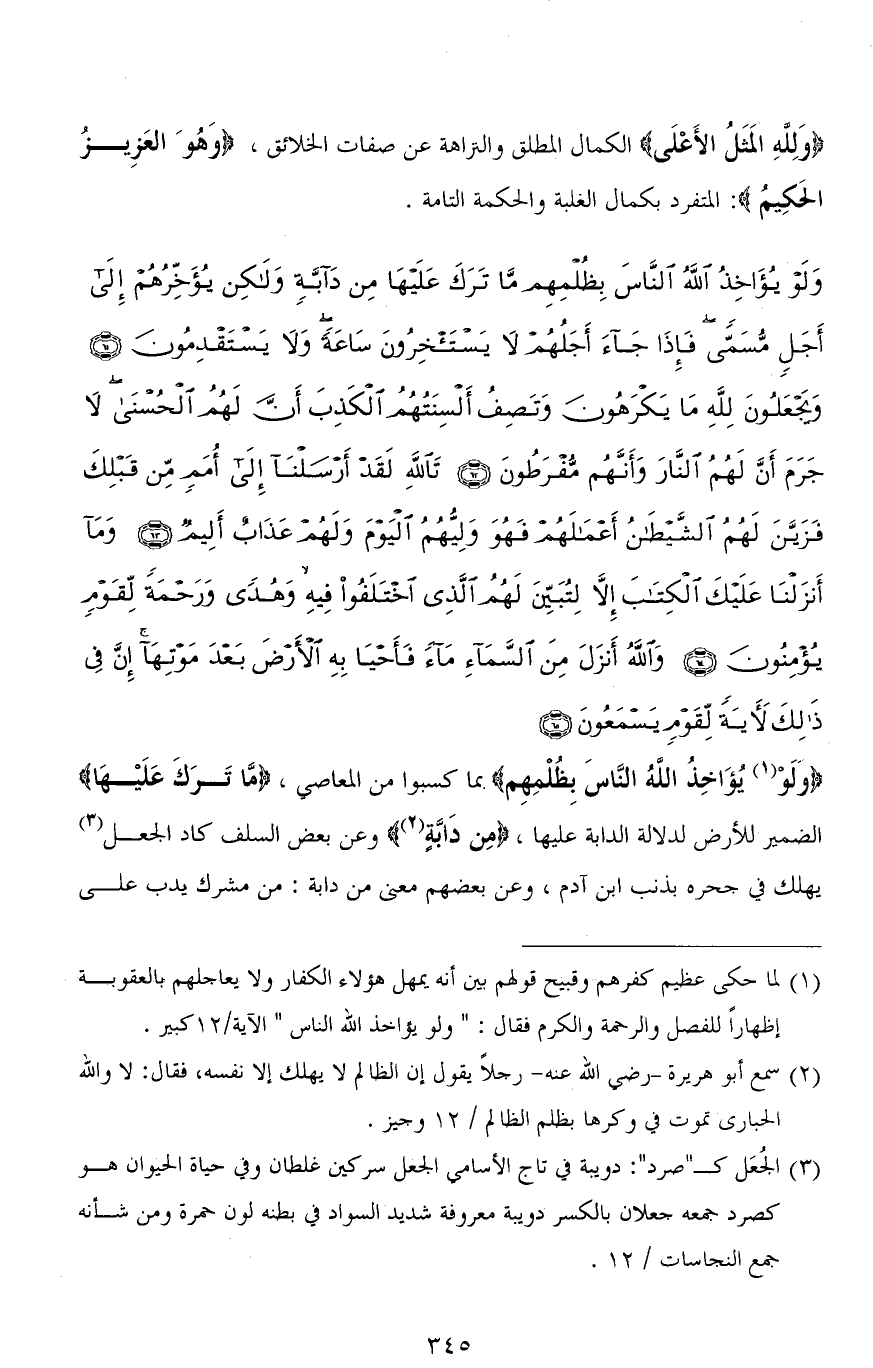 ﴿وَلِلَّهِ الْمَثَلُ الأَعْلَى﴾ الكمال المطلق والتراهة عن صفات الخلائق ، ﴿وَهُوَ العَزِيــزُ
الحَكِيمُ ﴾: المتفرد بكمال الغلبة والحكمة التامة .
وَلَوْ يُؤَاخِذُ ٱللَّهُ ٱلنَّاسَ بِظُلْمِهِم مَّا تَرَكَ عَلَيْهَا مِن دَآبَّةٍ وَلَٰكِن يُؤَخِّرُهُمْ إِلَىٰٓ
أَجَلٍ مُّسَمًّىۖ فَإِذَا جَآءَ أَجَلُهُمْ لَا يَسْتَـْٔخِرُونَ سَاعَةًۖ وَلَا يَسْتَقْدِمُونَ ۝٦١
وَيَجْعَلُونَ لِلَّهِ مَا يَكْرَهُونَ وَتَصِفُ أَلْسِنَتُهُمُ ٱلْكَذِبَ أَنَّ لَهُمُ ٱلْحُسْنَىٰۖ لَا
جَرَمَ أَنَّ لَهُمُ ٱلنَّارَ وَأَنَّهُم مُّفْرَطُونَ ۝٦٢ تَٱللَّهِ لَقَدْ أَرْسَلْنَآ إِلَىٰٓ أُمَمٍ مِّن قَبْلِكَ
فَزَيَّنَ لَهُمُ ٱلشَّيْطَٰنُ أَعْمَٰلَهُمْ فَهُوَ وَلِيُّهُمُ ٱلْيَوْمَ وَلَهُمْ عَذَابٌ أَلِيمٌ ۝٦٣ وَمَآ
أَنزَلْنَا عَلَيْكَ ٱلْكِتَٰبَ إِلَّا لِتُبَيِّنَ لَهُمُ ٱلَّذِى ٱخْتَلَفُوا۟ فِيهِۙ وَهُدًى وَرَحْمَةً لِّقَوْمٍ
يُؤْمِنُونَ ۝٦٤ وَٱللَّهُ أَنزَلَ مِنَ ٱلسَّمَآءِ مَآءً فَأَحْيَا بِهِ ٱلْأَرْضَ بَعْدَ مَوْتِهَآۚ إِنَّ فِى
ذَٰلِكَ لَأَيَةً لِّقَوْمٍ يَسْمَعُونَ ۝٦٥
﴿وَلَوْ(١) يُؤَاخِذُ اللَّهُ النَّاسَ بِظُلْمِهِم﴾ بما كسبوا من المعاصي ، ﴿مَّا تَــرَكَ عَلَيْــهَا﴾
الضمير للأرض لدلالة الدابة عليها ، ﴿مِن دَابَّةٍ(٢)﴾ وعن بعض السلف كاد الجعــل(٣)
يهلك في جحره بذنب ابن آدم ، وعن بعضهم معنى من دابة : من مشرك يدب علــى
(١) لما حكى عظيم كفرهم وقبيح قولهم بين أنه يمهل هؤلاء الكفار ولا يعاجلهم بالعقوبــة
إظهاراً للفصل والرحمة والكرم فقال : " ولو يؤاخذ الله الناس " الآية/١٢كبير .
(٢) سمع أبو هريرة -رضي الله عنه- رجلاً يقول إن الظالم لا يهلك إلا نفسه، فقال: لا والله
الحبارى تموت في وكرها بظلم الظالم / ١٢ وجيز .
(٣) الجُعَل كــ"صرد": دويبة في تاج الأسامي الجعل سركين غلطان وفي حياة الحيوان هــو
كصرد جمعه جعلان بالكسر دويبة معروفة شديد السواد في بطنه لون حمرة ومن شــأنه
جمع النجاسات / ١٢ .
٣٤٥